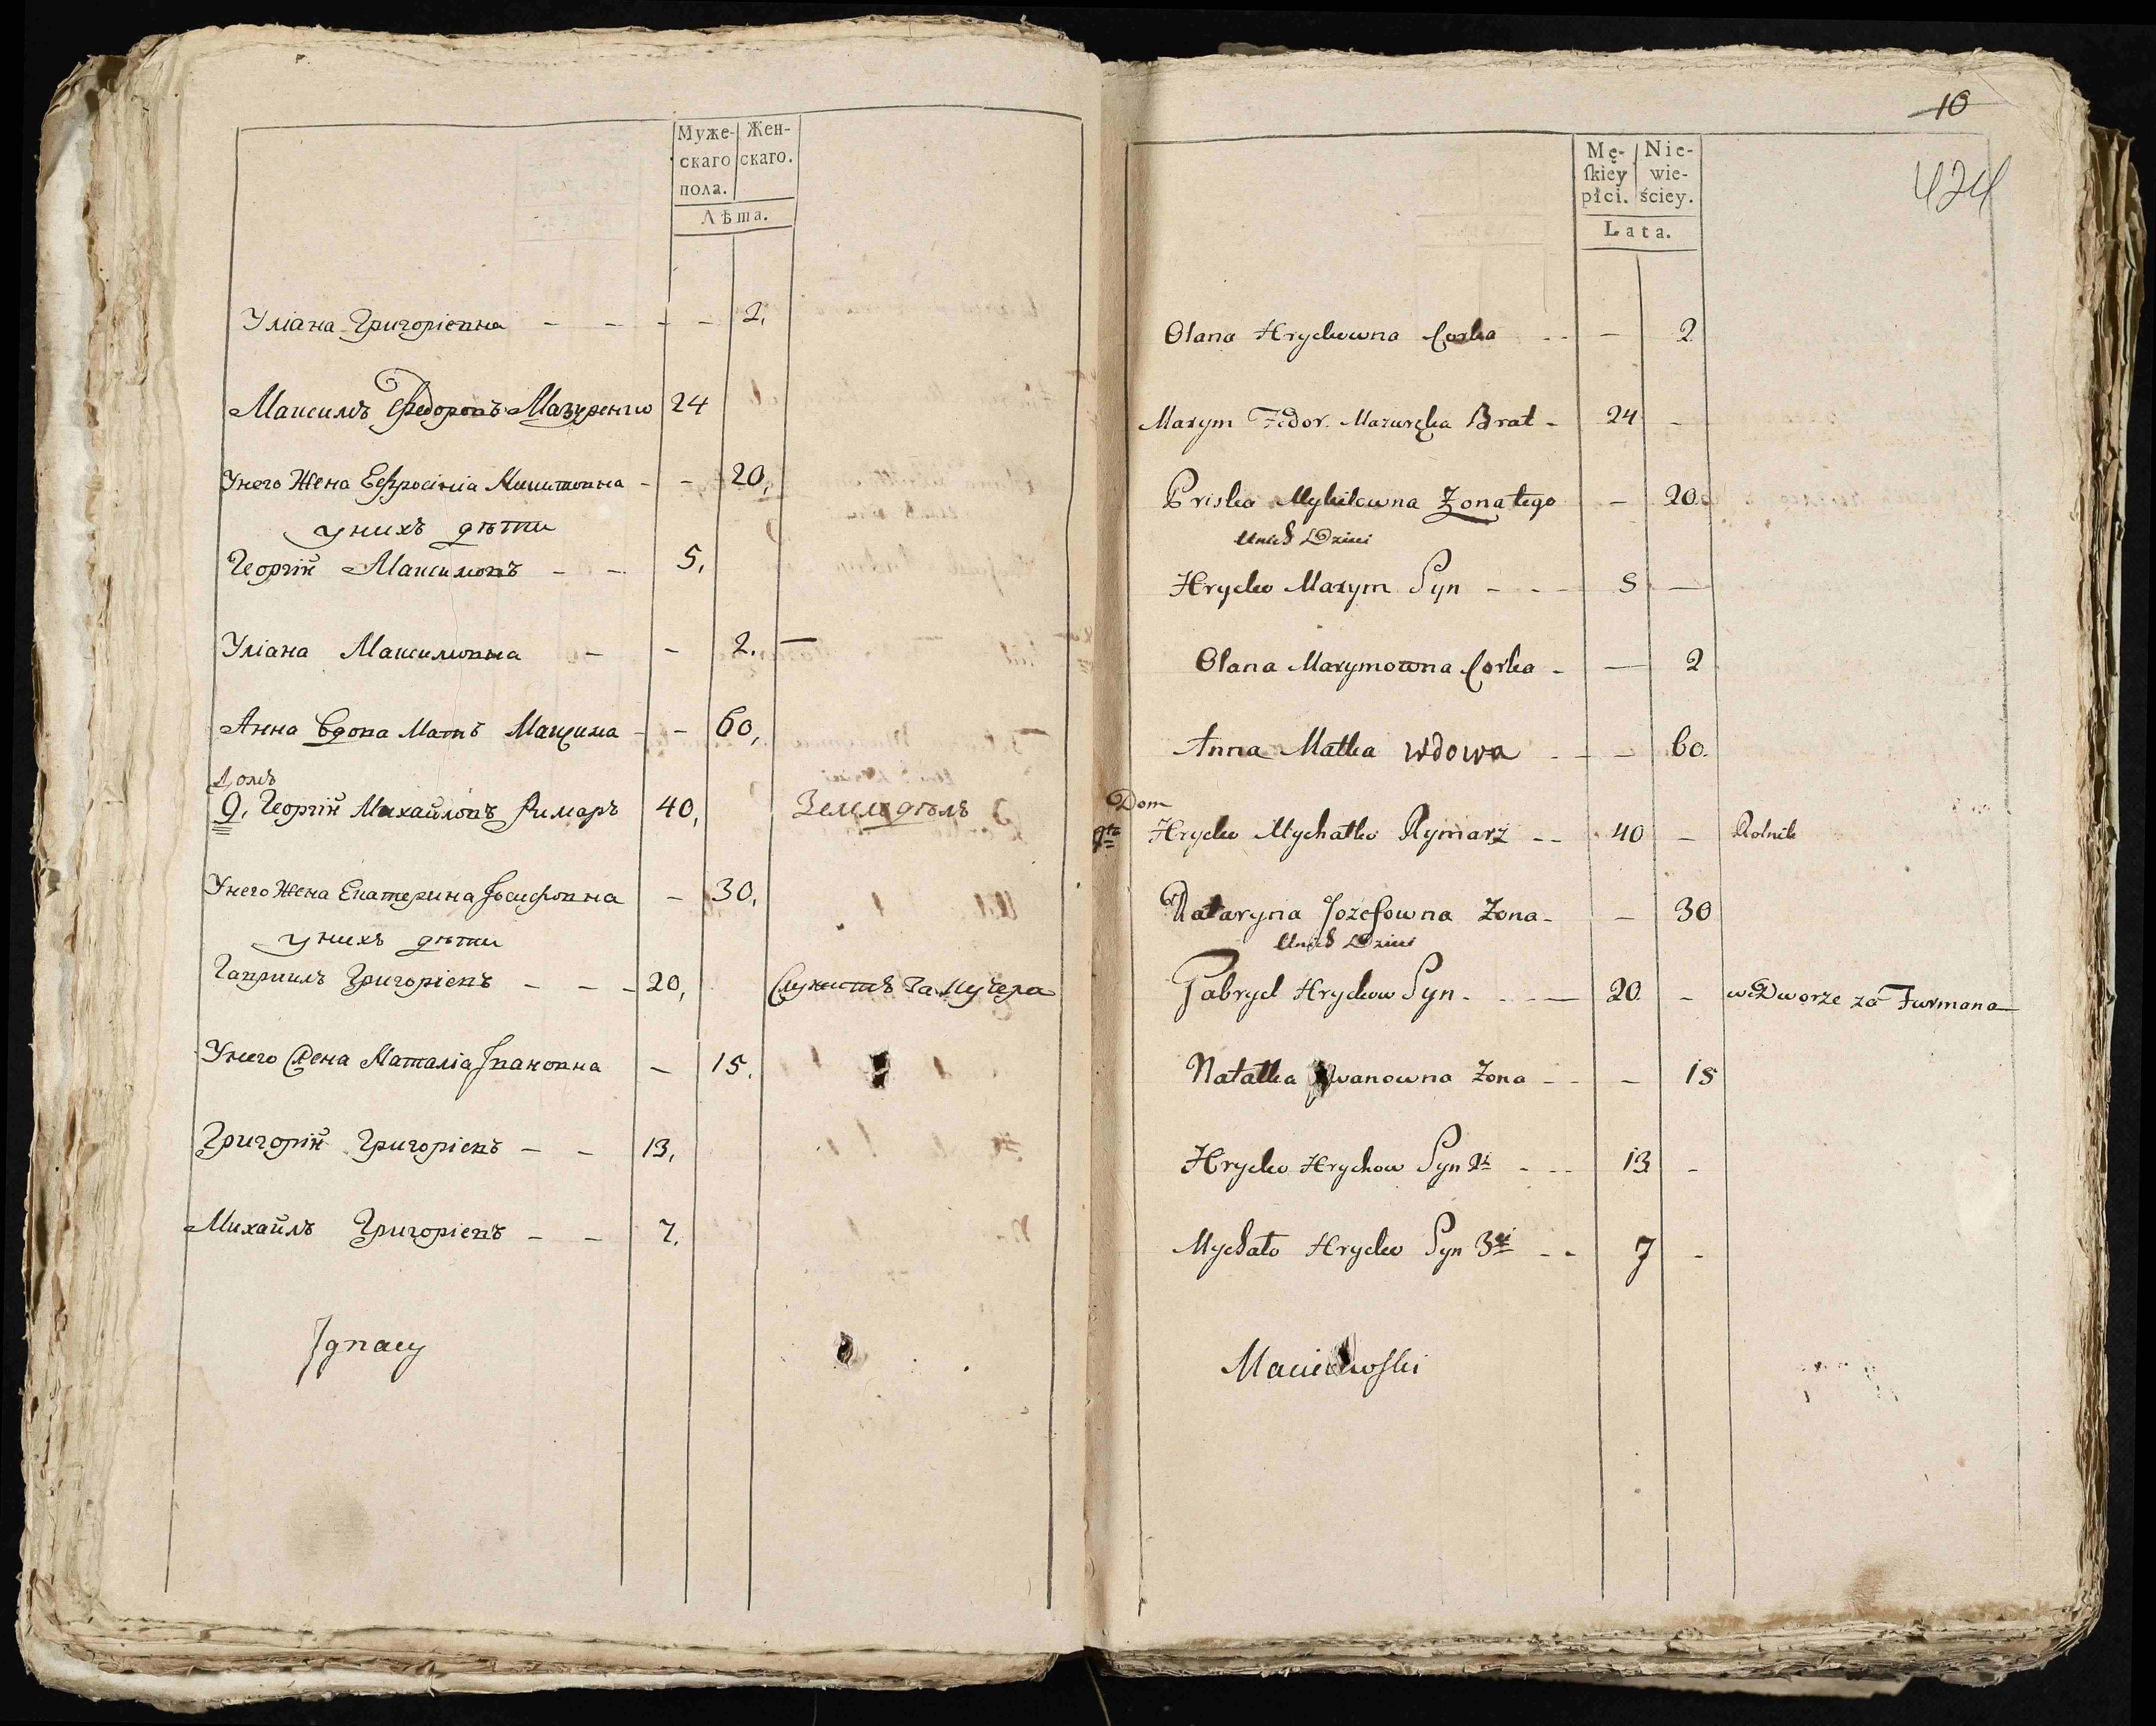 Муже- Жен-
скаго скаго.
пола.
Лѣта.
Уліана Григоріевна - - - - 2,
Максимъ Федоровъ Мазуренко 24
Унего Жена Ефросинія Микитовна - - 20,
унихъ дѣти
Георгій Максимовъ - - 5,
Уліана Максимовна - - 2. -
Анна вдова Мать Максима - - 60,
Домъ
9. Георгій Михайловъ Римаръ 40, Земледѣлъ
Унего Жена Екатерина Іосифовна - 30,
унихъ дѣти
Гавриилъ Григоріевъ - - - 20, Служитъ За кучера
Унего Жена Наталіа Івановна - 15.
Григорій Григоріевъ - - 13,
Михайлъ Григоріевъ - - 7.
Ignacy
10
424
Mę- Nie-
ſkiey wie-
płci. ściey.
Lata.
Olana Hryckowna Corka - - - 2
Maxym Fedor. Brat - 24 -
Priska Mykitowna Zona tego - 20.
Unich Dzieci
Hrycko Maxym Syn - - - 5 -
Olana Maxymowna Corka - - 2
Anna Matka wdowa - - - 60.
Dom
9te Hrycko Mychałko Rymarz - - 40 - Rolnik
Kataryna Jozefowna Zona - - 30
Unich Dzieci
Gabryel Hryckow Syn - - - 20 - we Dworze za Furmana
Natalka Iwanowna Zona - - - 15
Hrycko Hryckow Syn 2i - - - 13 -
Mychało Hrycko Syn 3ci - - 7 -
Maciejowſki